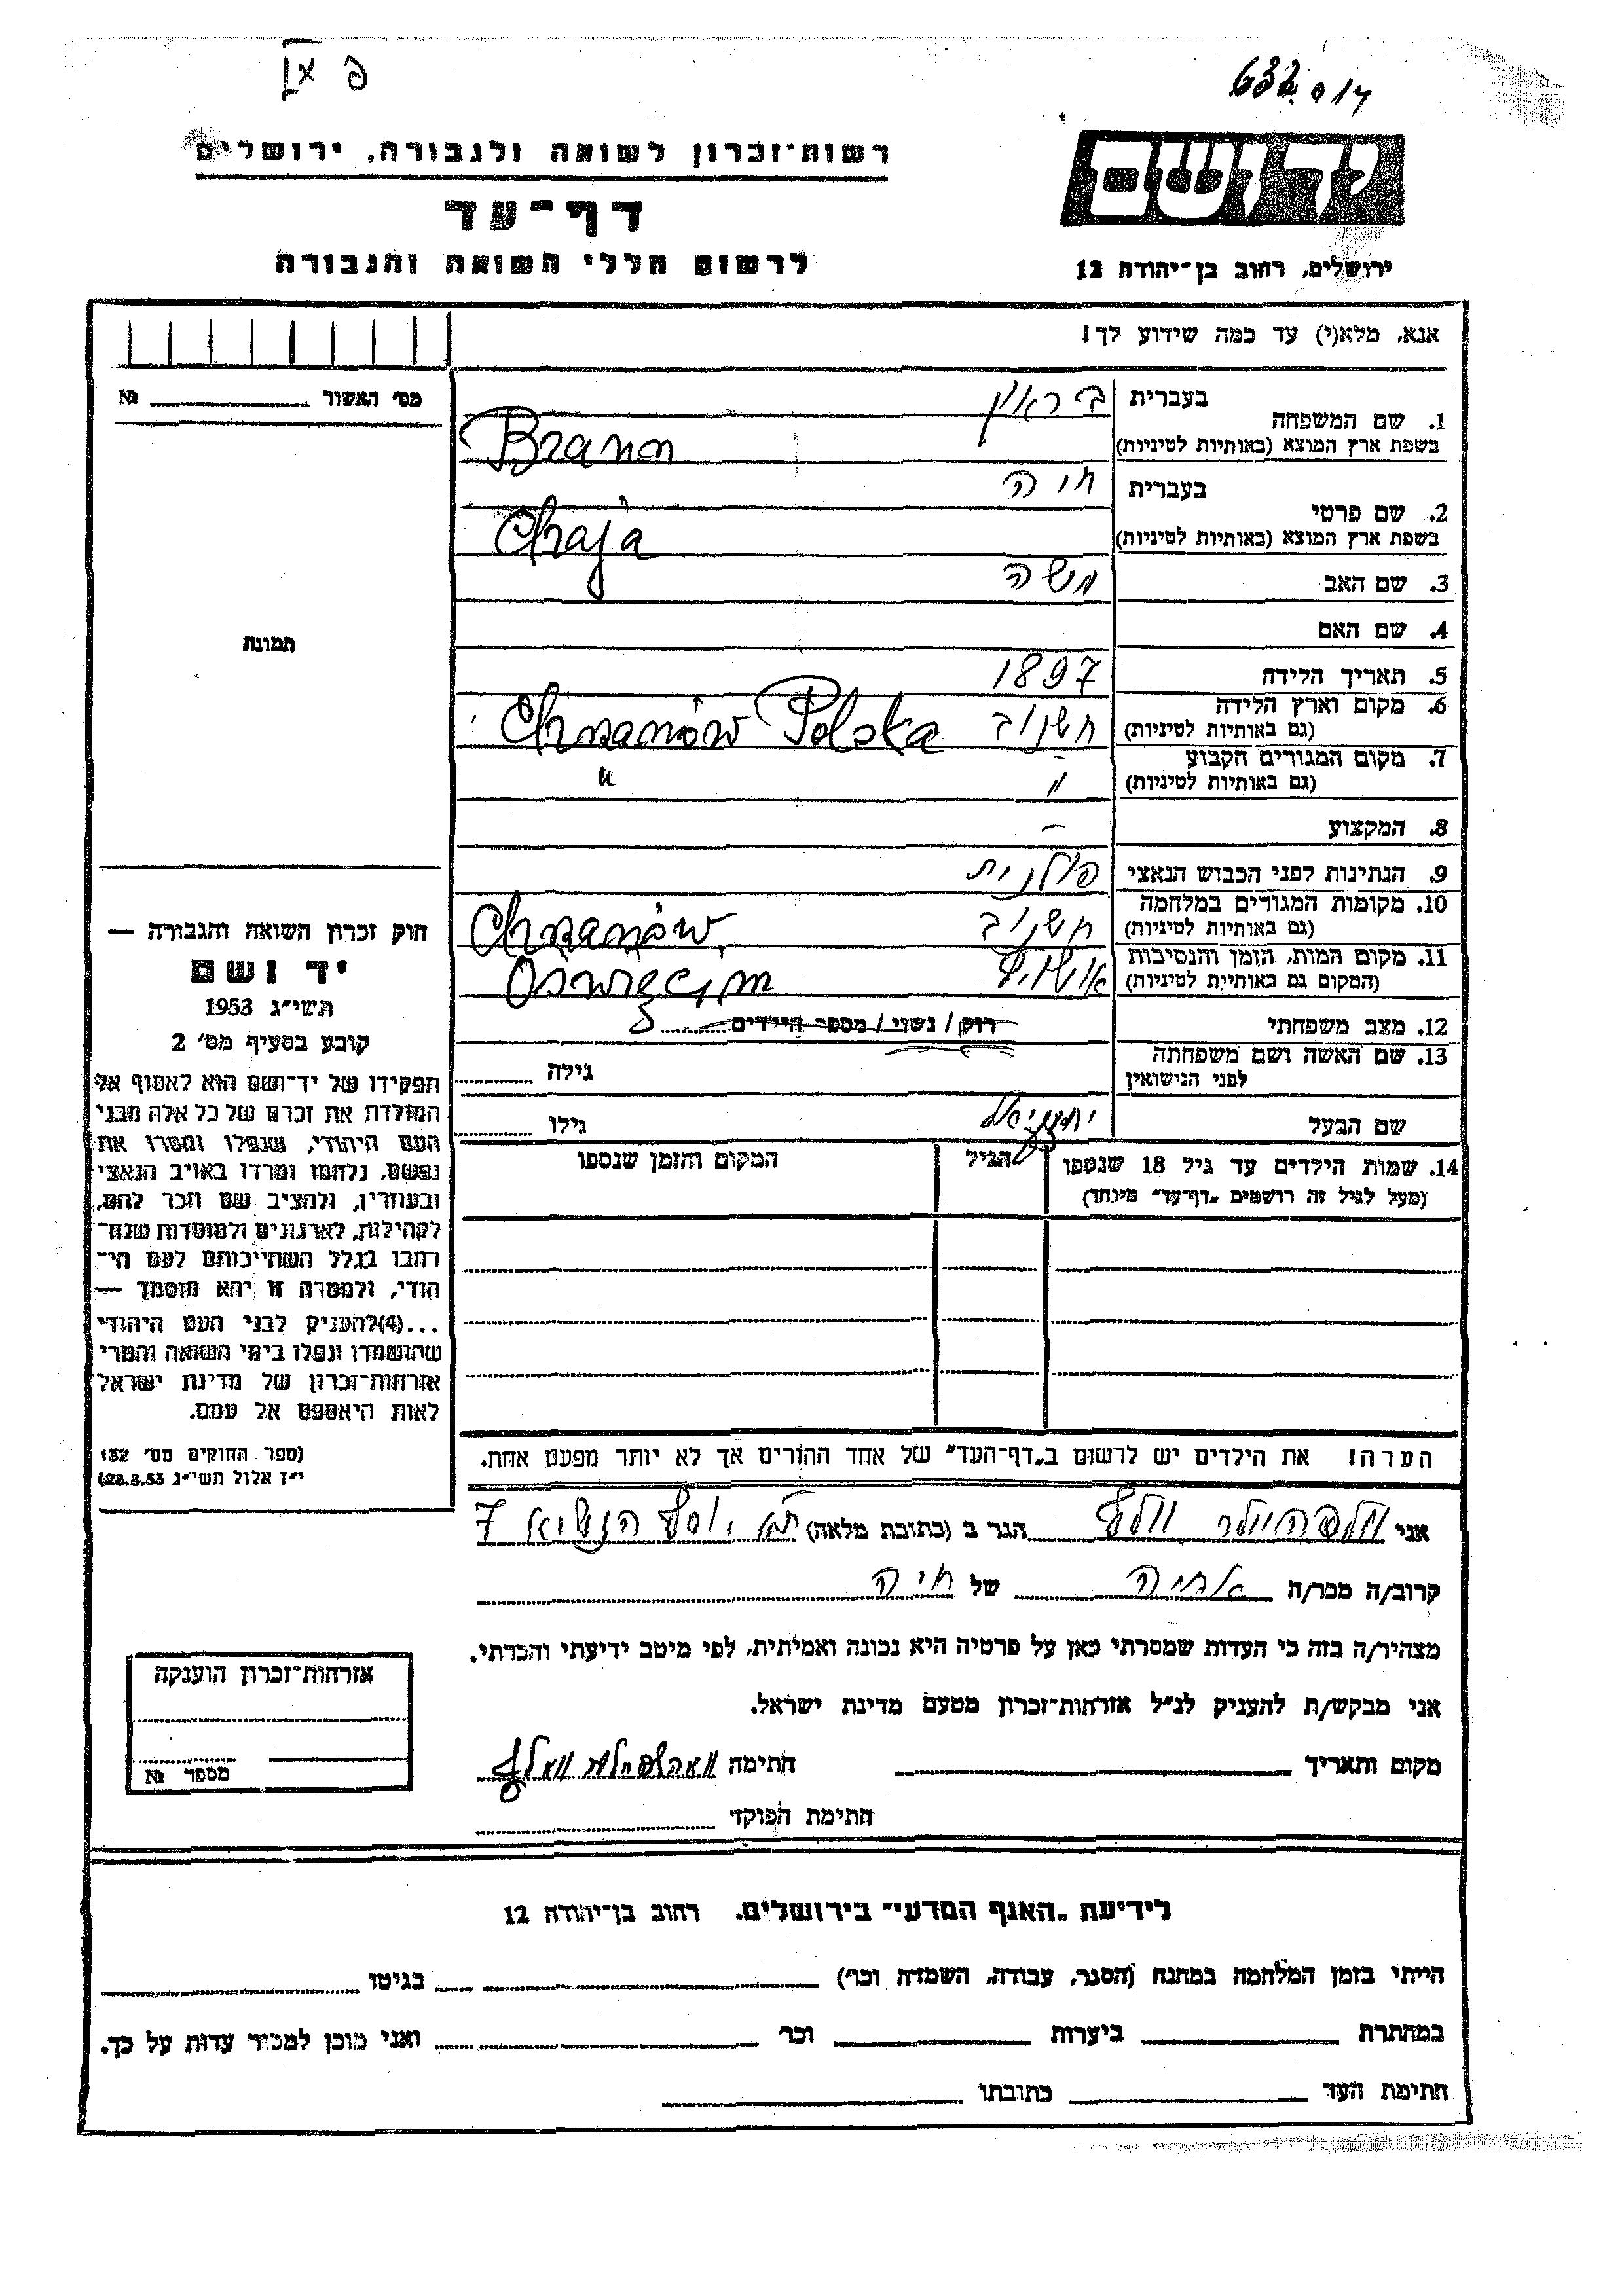 632 017
יד ושם
רשות־זכרון לשואה ולגבורה, ירושלים
דף־עד
לרשום חללי השואה והגבורה
ירושלים, רחוב בן־יהודה 12
אנא, מלא(י) עד כמה שידוע לך!
מס׳ האשור № 
1. שם המשפחה בעברית בראון
בשפת ארץ המוצא (באותיות לטיניות) Braun
2. שם פרטי בעברית חיה
בשפת ארץ המוצא (באותיות לטיניות) Chaja
3. שם האב משה
4. שם האם
תמונה
5. תאריך הלידה 1897
6. מקום וארץ הלידה (גם באותיות לטיניות) חשנוב Chrzanów Polska
7. מקום המגורים הקבוע (גם באותיות לטיניות) " "
8. המקצוע –
9. הנתינות לפני הכבוש הנאצי פולנית
10. מקומות המגורים במלחמה (גם באותיות לטיניות) חשנוב Chrzanów
11. מקום המות, הזמן והנסיבות (המקום גם באותיית לטיניות) אושויץ Oswięcim
12. מצב משפחתי רוק / נשוי / מספר הילדים
13. שם האשה ושם משפחתה לפני הנישואין גילה
שם הבעל גילו
14. שמות הילדים עד גיל 18 שנספו הגיל המקום והזמן שנספו
(מעל לגיל זה רושמים „דף־עד" מיוחד)
הערה! את הילדים יש לרשום ב„דף־העד" של אחד ההורים אך לא יותר מפעם אחת.
חוק זכרון השואה והגבורה —
יד ושם
תשי״ג 1953
קובע בסעיף מס׳ 2
תפקידו של יד־ושם הוא לאסוף אל
המולדת את זכרם של כל אלה מבני
העם היהודי, שנפלו ומסרו את
נפשם, נלחמו ומרדו באויב הנאצי
ובעוזריו, ולהציב שם וזכר להם,
לקהילות, לארגונים ולמוסדות שנח־
רחבו בגלל השתייכותם לעם הי־
הודי, ולמטרה זו יהא מוסמך —
...(4)להעניק לבני העם היהודי
שהושמדו ונפלו בימי השואה והמרי
אזרחות־זכרון של מדינת ישראל
לאות היאספם אל עמם.
(ספר החוקים מס׳ 132
י״ז אלול תשי״ג 28.8.53)
אני וולף הגר ב (כתובת מלאה) יוסף הנשיא 7
קרוב/ה מכר/ה אחיה של חיה
מצהיר/ה בזה כי העדות שמסרתי כאן על פרטיה היא נכונה ואמיתית, לפי מיטב ידיעתי והכרתי.
אני מבקש/ת להעניק לנ״ל אזרחות־זכרון מטעם מדינת ישראל.
מקום ותאריך חתימה
חתימת הפוקד
אזרחות־זכרון הוענקה
מספר №
לידיעת „האגף המדעי" בירושלים. רחוב בן־יהודה 12
הייתי בזמן המלחמה במחנה (הסגר, עבודה, השמדה וכו׳) בגיטו
במחתרת ביערות וכו׳ ואני מוכן למסיר עדות על כך.
חתימת העד כתובתו